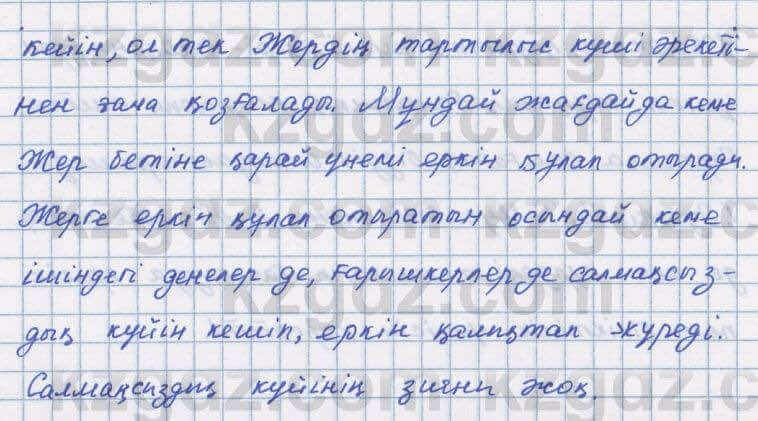 кейін, ол тек Жердің тартылыс күші әрекеті-
нен ғана қозғалады. Мұндай жағдайда кеме
Жер бетіне қарай үнемі еркін құлап отырады.
Жерге еркін құлап отыратын осындай кеме
ішіндегі денелер де, ғарышкерлер де салмақсыз-
дық күйін кешіп, еркін қалықтап жүреді.
Салмақсыздық күйінің зияны жоқ.
kzgdz.com